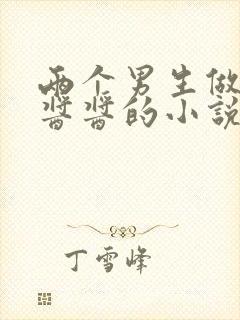 两个男生做
酱酱的小说
丁雪峰